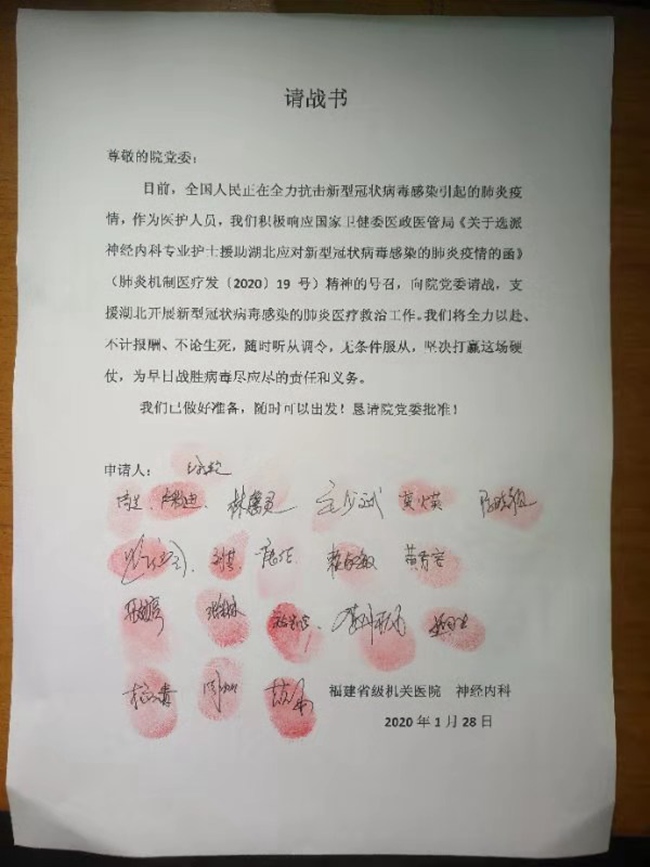 请战书
尊敬的院党委：
目前，全国人民正在全力抗击新型冠状病毒感染引起的肺炎疫
情，作为医护人员，我们积极响应国家卫健委医政医管局《关于选派
神经内科专业护士援助湖北应对新型冠状病毒感染的肺炎疫情的函》
（肺炎机制医疗发〔2020〕19 号）精神的号召，向院党委请战，支
援湖北开展新型冠状病毒感染的肺炎医疗救治工作。我们将全力以赴、
不计报酬、不论生死，随时听从调令，无条件服从，坚决打赢这场硬
仗，为早日战胜病毒尽应尽的责任和义务。
我们已做好准备，随时可以出发！恳请院党委批准！
申请人：
福建省级机关医院 神经内科
2020 年 1 月 28 日